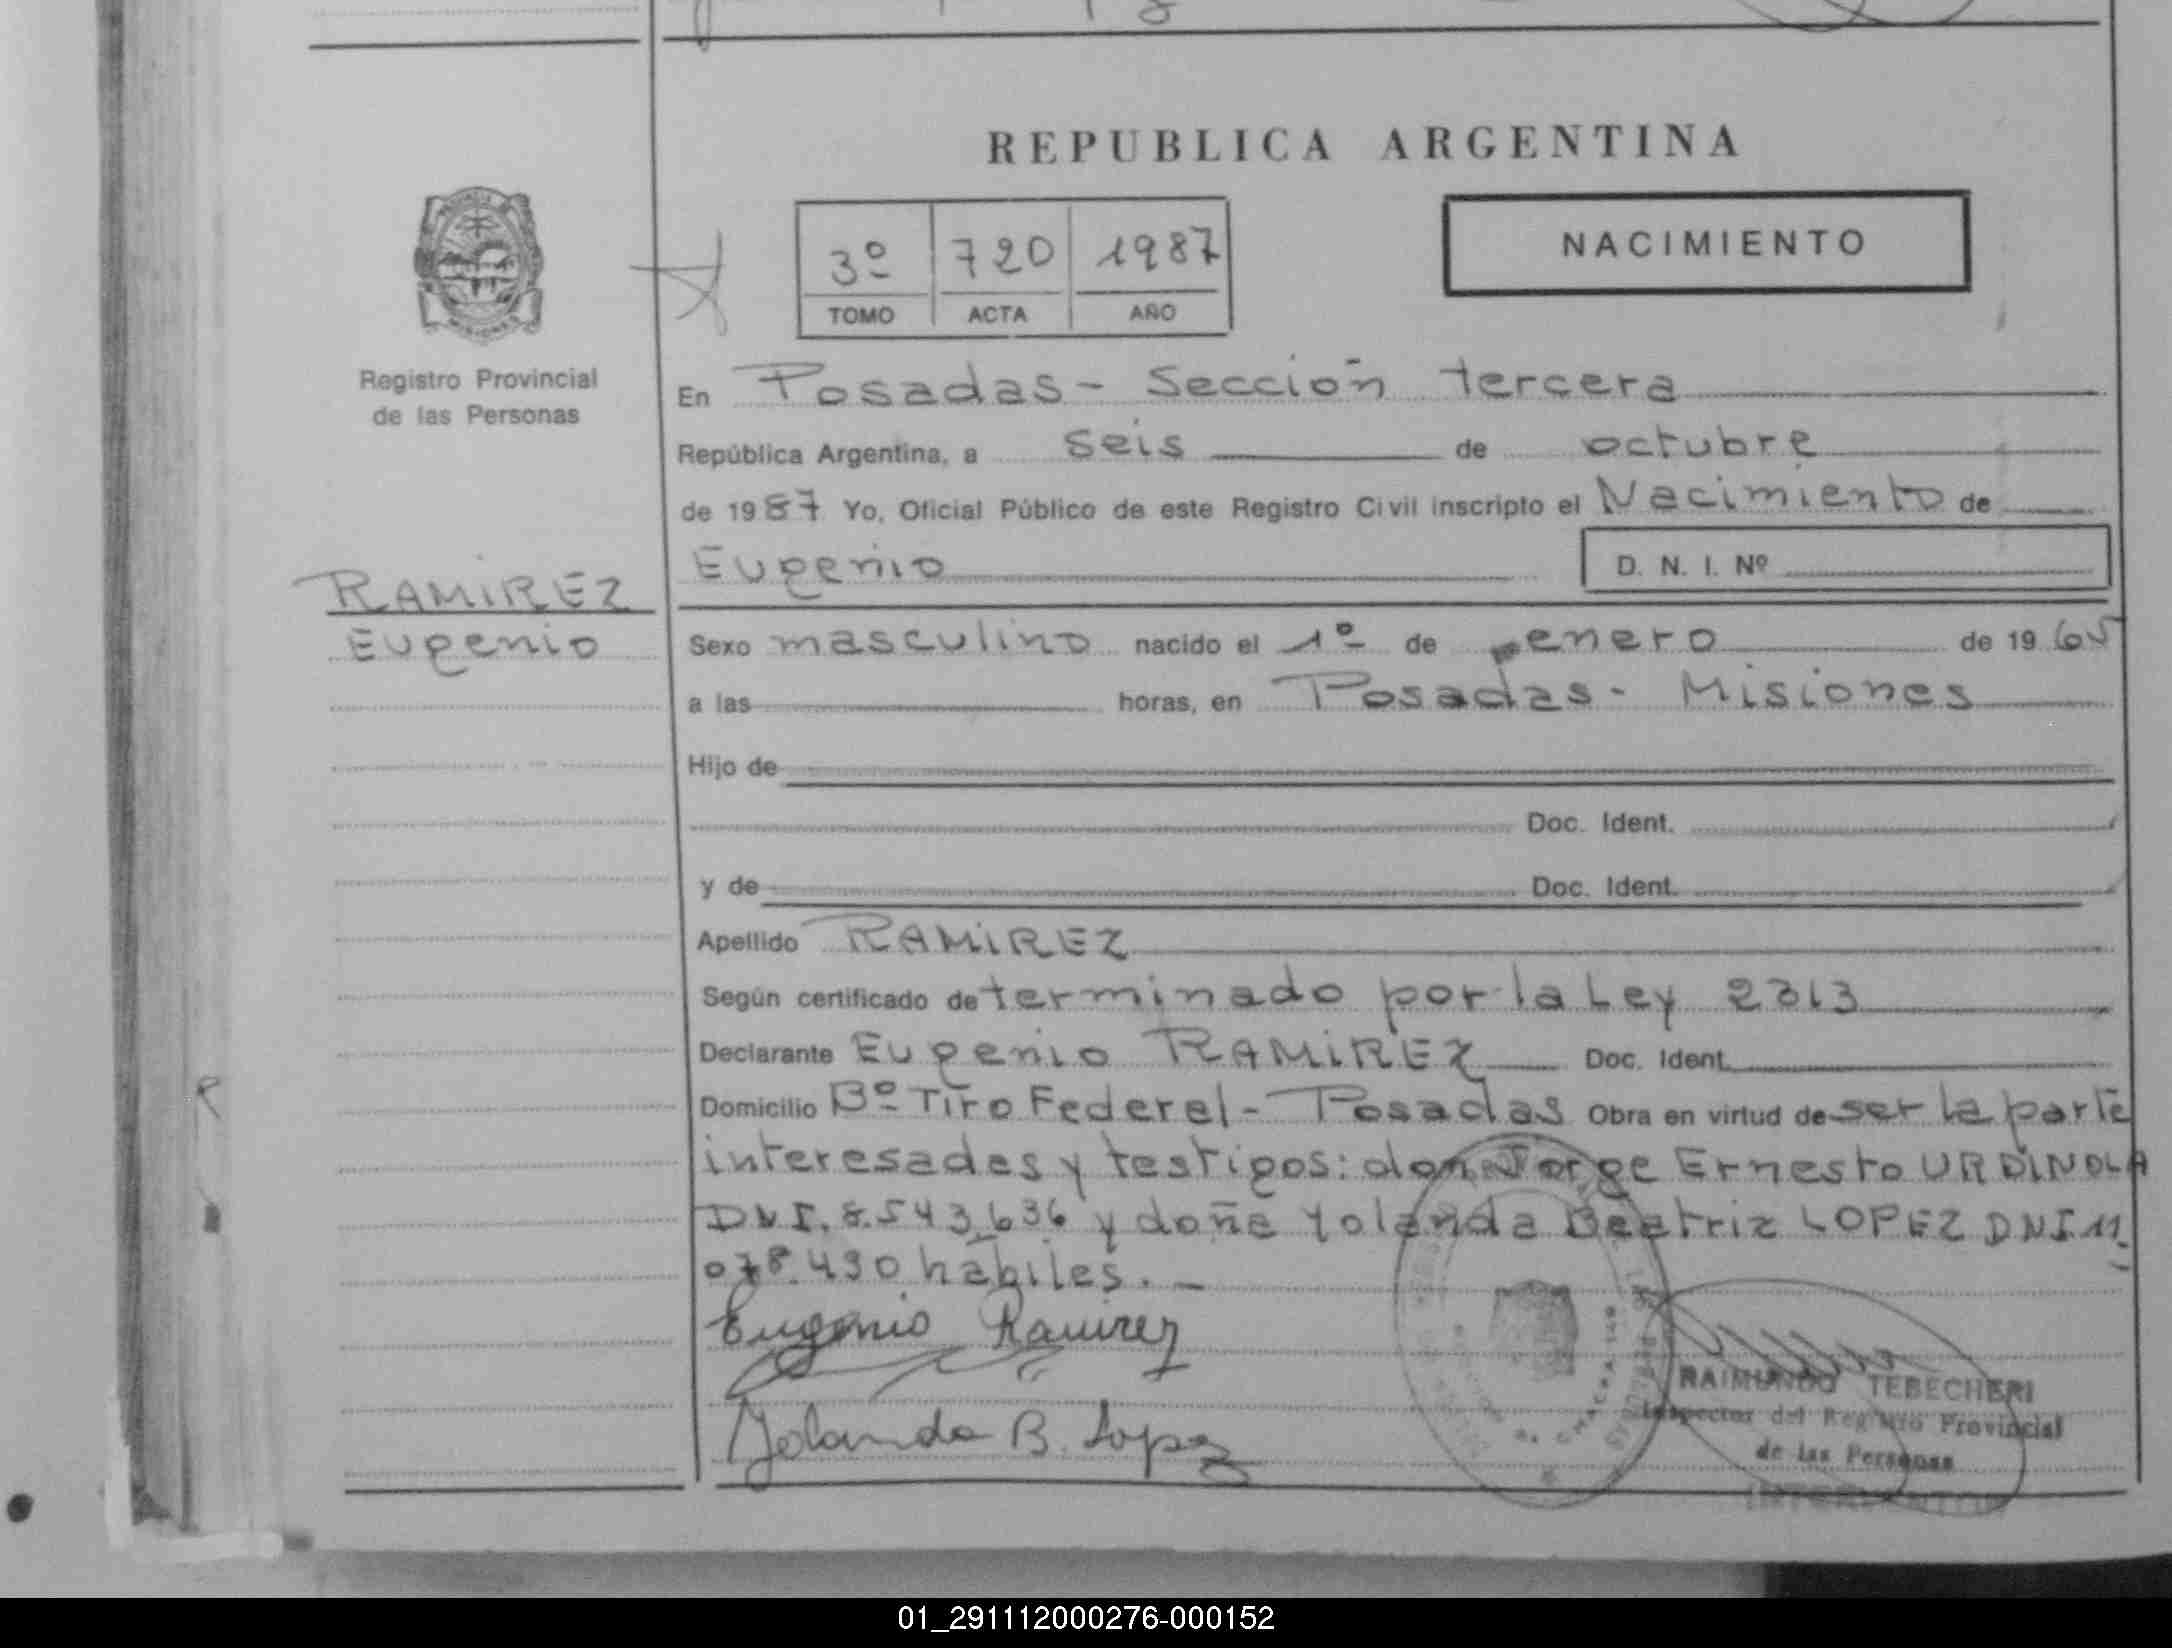 REPUBLICA ARGENTINA
3º 720 1987
TOMO ACTA AÑO
NACIMIENTO
MISIONES
Registro Provincial
de las Personas
RAMIREZ
Eugenio
En Posadas - Sección tercera
República Argentina, a seis de octubre
de 1987 Yo, Oficial Público de este Registro Civil inscripto el Nacimiento de
Eugenio D. N. I. Nº
Sexo masculino nacido el 1º de enero de 1965
a las horas, en Posadas - Misiones
Hijo de
Doc. Ident.
y de Doc. Ident.
Apellido RAMIREZ
Según certificado de terminado por la Ley 2313
Declarante Eugenio RAMIREZ Doc. Ident.
Domicilio Bº Tiro Federal - Posadas Obra en virtud de ser la parte
interesadas y testigos: don Jorge Ernesto URDINOLA
DNI. 8.543.636 y doña Yolanda Beatriz LOPEZ DNI 11.
078.490 hábiles. -
Eugenio Ramirez
Yolanda B. Lopez
RAIMUNDO TEBECHERI
Inspector del Registro Provincial
de las Personas
01_291112000276-000152